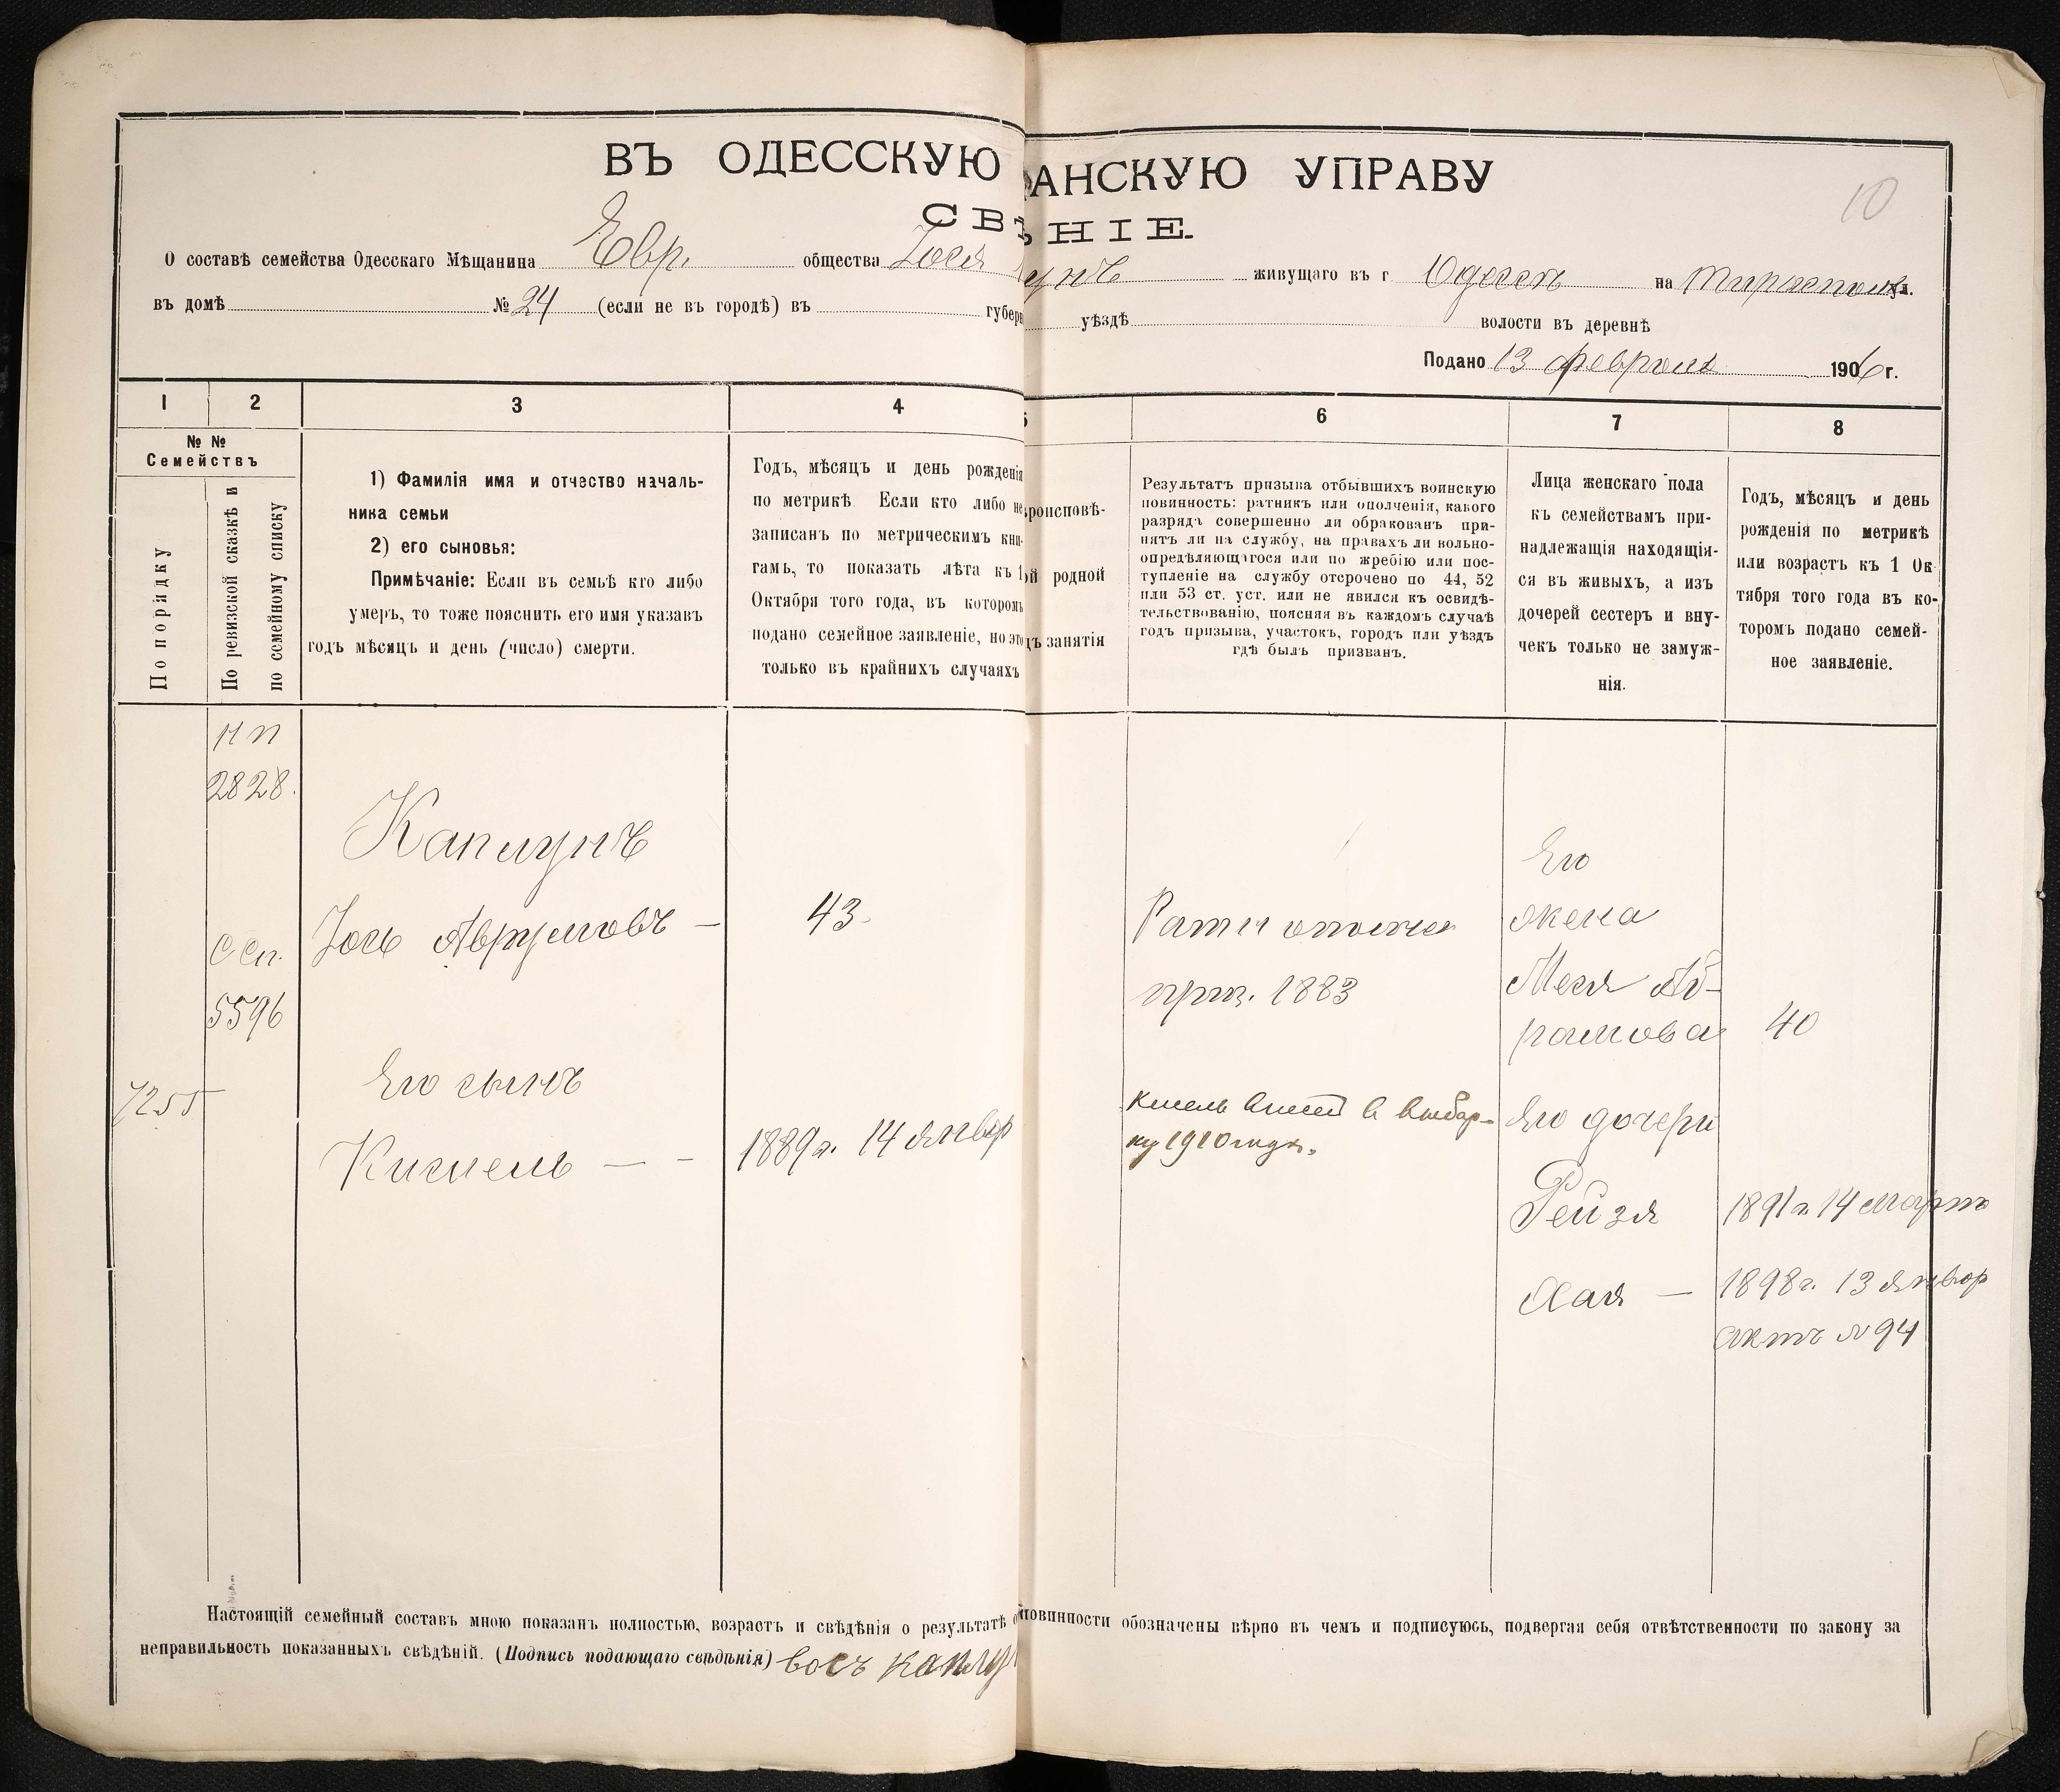 ВЪ ОДЕССКУЮ АНСКУЮ УПРАВУ
10
СВѢНІЕ.
О составѣ семейства Одесскаго Мѣщанина Евр. общества Іося унъ живущаго въ г. Одессѣ на Тираспол ул.
въ домѣ № 24 (если не въ городѣ) въ губерн уѣздѣ волости въ деревнѣ
Подано 13 февраля 1906 г.
1 2 3 4 5 6 7 8
№ №
Семействъ
По порядку
По ревизской сказкѣ и
по семейному списку
1) Фамилія имя и отчество началь-
ника семьи
2) его сыновья:
Примѣчаніе: Если въ семьѣ кто либо
умеръ, то тоже пояснить его имя указавъ
годъ мѣсяцъ и день (число) смерти.
Годъ, мѣсяцъ и день рожденія
по метрикѣ. Если кто либо не
записанъ по метрическимъ кни-
гамъ, то показать лѣта къ 1
Октября того года, въ которомъ
подано семейное заявленіе, но это
только въ крайнихъ случаяхъ
роисповѣ-
й родной
ъ занятія
Результатъ призыва отбывшихъ воинскую
повинность: ратникъ или ополченія, какого
разряда совершенно ли обракованъ при-
нятъ ли на службу, на правахъ ли вольно-
опредѣляющагося или по жребію или пос-
тупленіе на службу отсрочено по 44, 52
или 53 ст. уст. или не явился къ освидѣ-
тельствованію, поясняя въ каждомъ случаѣ
годъ призыва, участокъ, городъ или уѣздъ
гдѣ былъ призванъ.
Лица женскаго пола
къ семействамъ при-
надлежащія находящія-
ся въ живыхъ, а изъ
дочерей сестеръ и вну-
чекъ только не замуж-
нія.
Годъ, мѣсяцъ и день
рожденія по метрикѣ
или возрастъ къ 1 Ок
тября того года въ ко-
торомъ подано семей-
ное заявленіе.
Н П
2828.
С Сп.
5596
7255
Каплунъ
Іось Аврумовъ —
43
Его сынъ
Кисиель — -
1889 г. 14 январ
Рат ополче
приз. 1883
Кисель внесен в выбор-
ку 1910 года.
Его
жена
Меся Аб-
рамова
40
Его дочери
Рейзя
1891 г. 14 марта
Хая —
1898 г. 13 январ
актъ № 94
Настоящій семейный составъ мною показанъ полностью, возрастъ и свѣдѣнія о результатѣ о повинности обозначены вѣрно въ чемъ и подписуюсь, подвергая себя отвѣтственности по закону за
неправильность показанныхъ свѣдѣній. (Подпись подающаго свѣдѣнія) Іось каплу